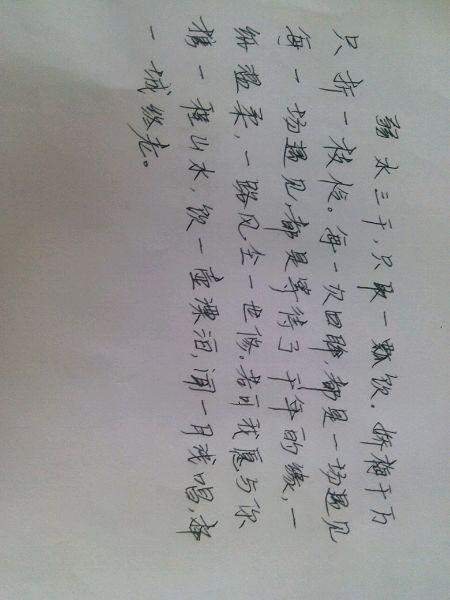 弱水三千，只取一瓢饮。娇梅千万
只折一枝怜。每一次回眸，都是一场遇见
每一场遇见，都是等待了千年的缘，一
纸温柔，一路风尘一世伤。若可我愿与你
携一程山水，饮一壶漂泊，闻一月残唱，举
一城终老。